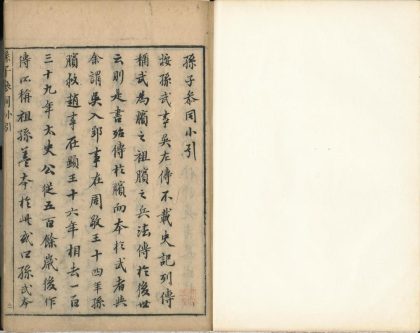 孫子參同小引
按孫武事吳左傳不載史記列傳
稱武為臏之祖臏之兵法傳於後世
云則是書殆傳於臏而本於武者與
余謂吳入郢事在周敬王十四年孫
臏救趙事在顯王十六年相去一百
三十九年太史公從五百餘歲後作
傳以稱祖孫蓋本於此或曰孫武本
孫子參同小引